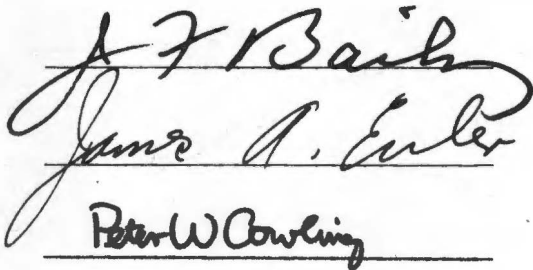 J F Baily
James A. Euler
Peter W Cowling